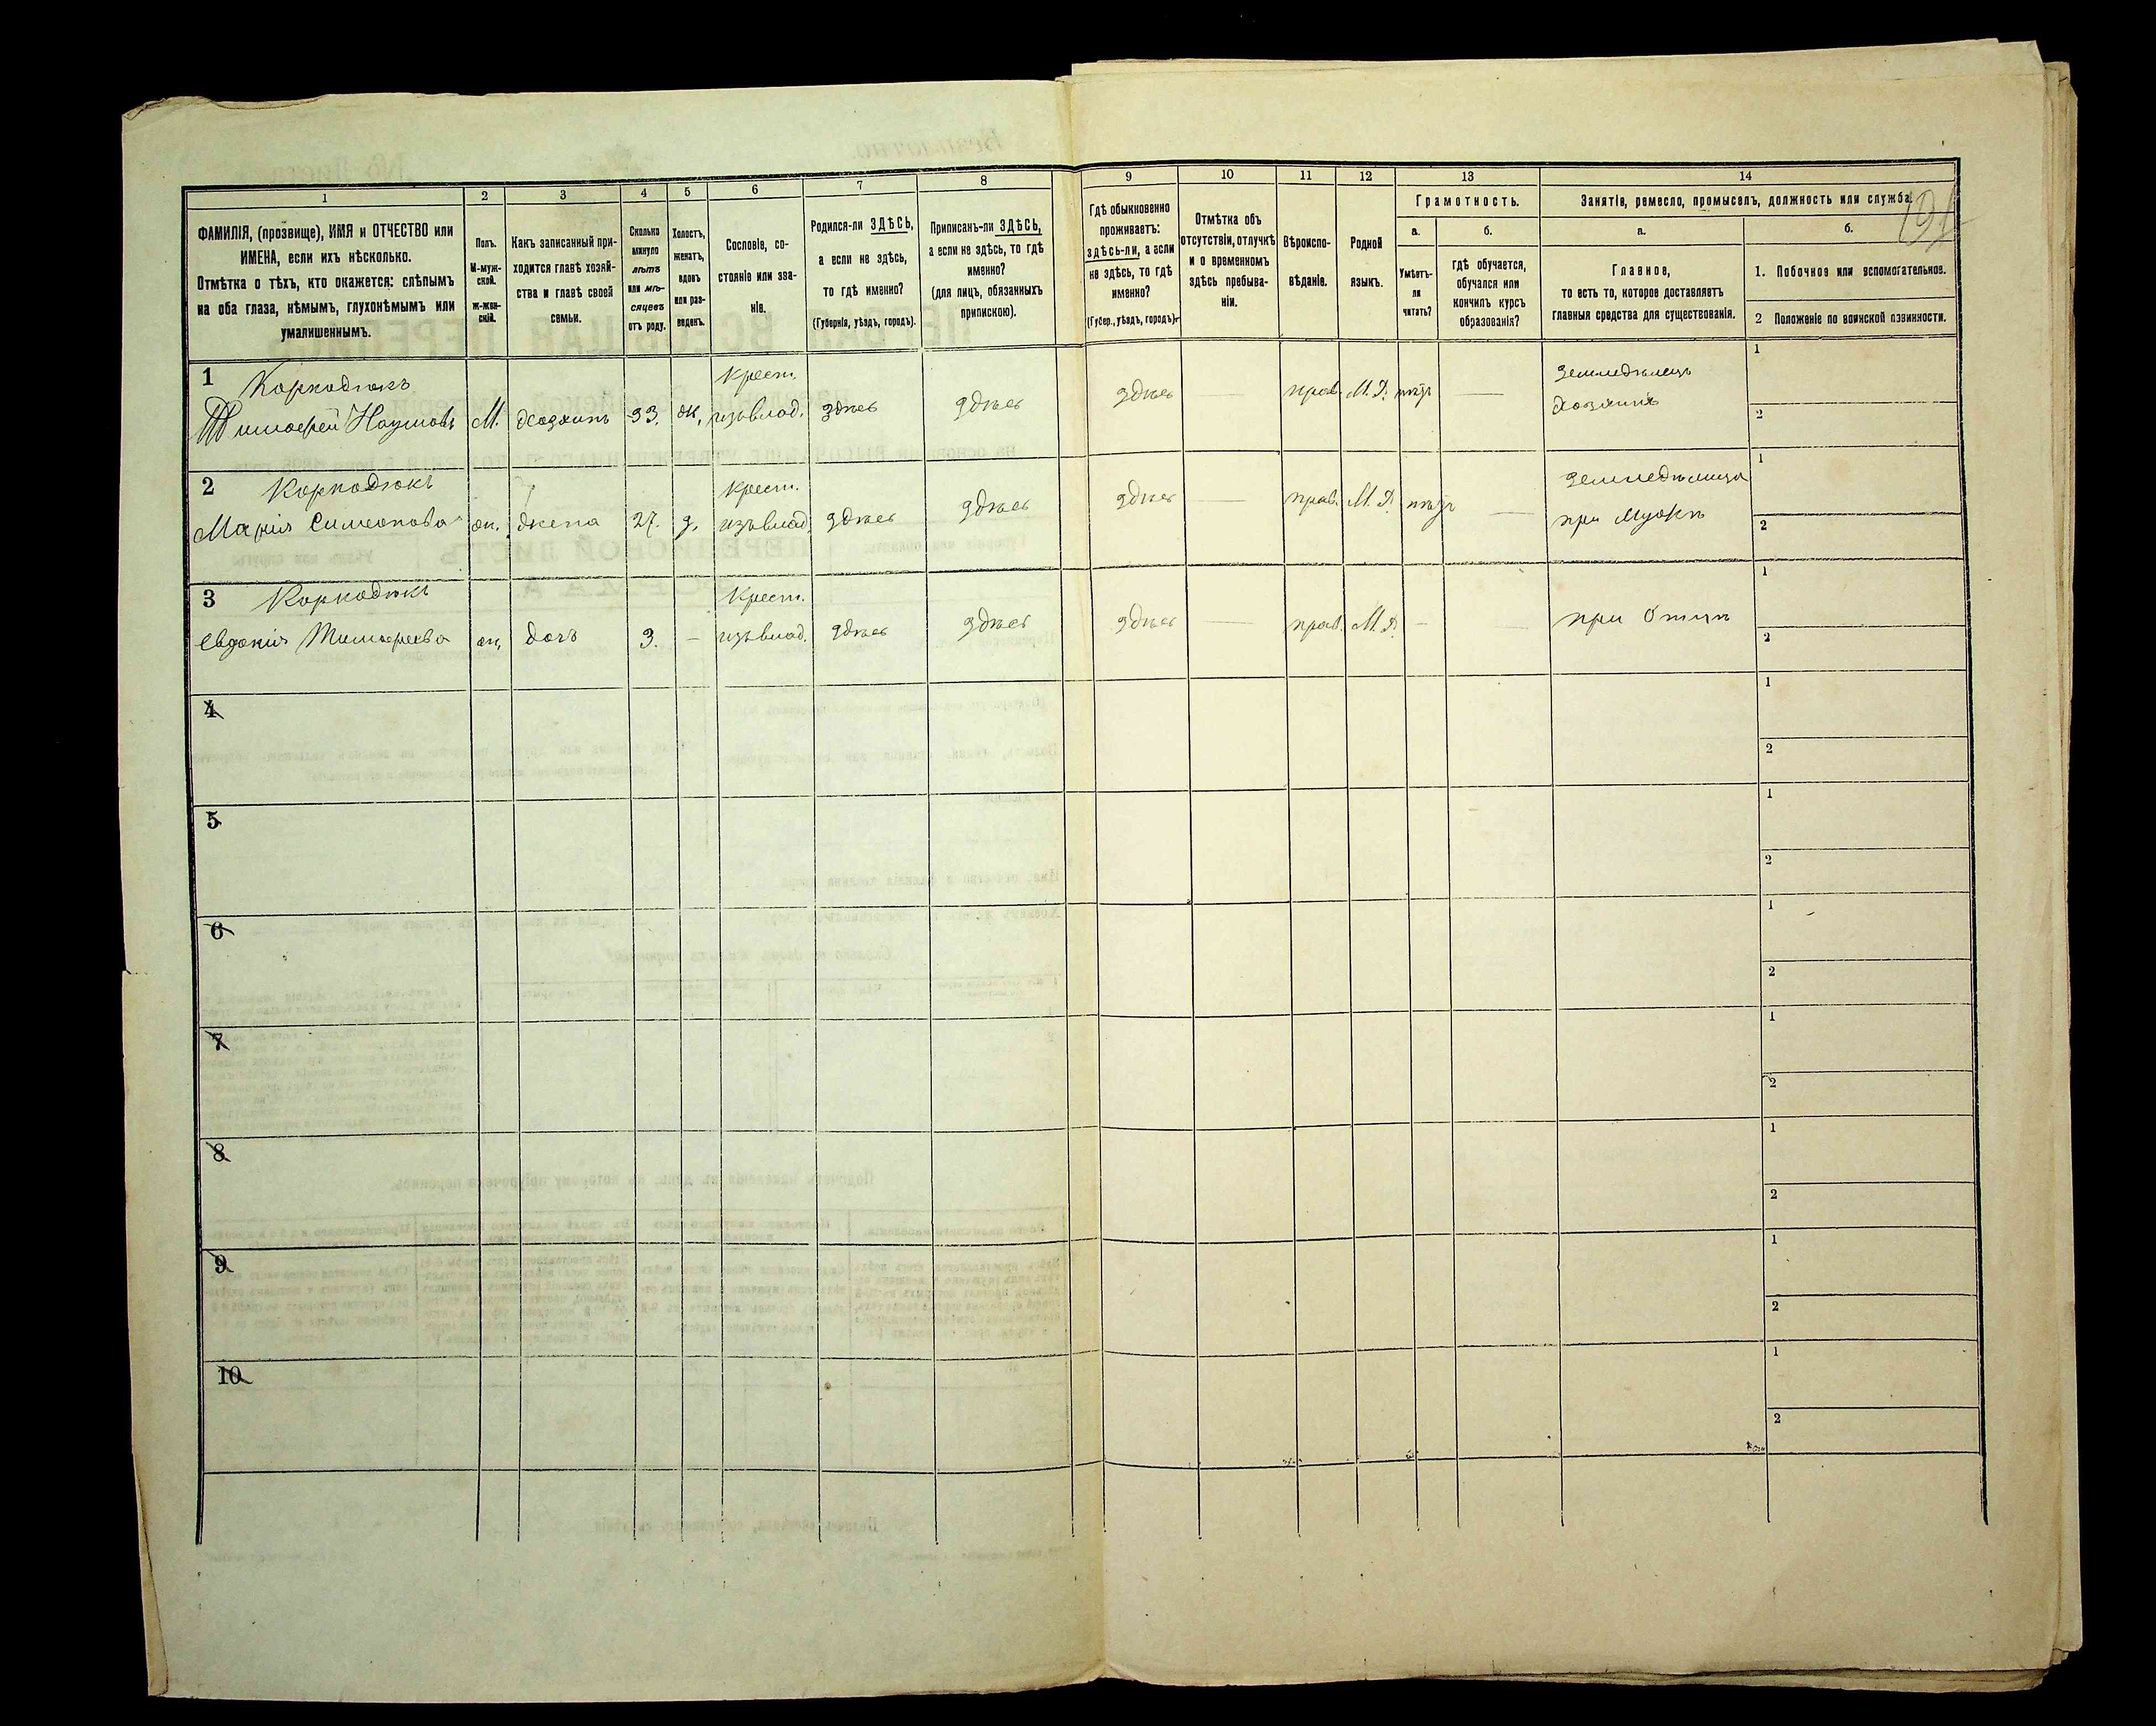 191
1
2
3
4
5
6
7
8
9
10
11
12
13
14
ФАМИЛІЯ, (прозвище), ИМЯ и ОТЧЕСТВО или
ИМЕНА, если ихъ нѣсколько.
Отмѣтка о тѣхъ, кто окажется: слѣпымъ
на оба глаза, нѣмымъ, глухонѣмымъ или
умалишеннымъ.
Полъ.
М-муж-
ской.
Ж-жен-
скій.
Какъ записанный при-
ходится главѣ хозяй-
ства и главѣ своей
семьи.
Сколько
минуло
лѣтъ
или мѣ-
сяцевъ
отъ роду.
Холостъ,
женатъ,
вдовъ
или раз-
веденъ.
Сословіе, со-
стояніе или зва-
ніе.
Родился-ли ЗДѢСЬ,
а если не здѣсь,
то гдѣ именно?
(Губернія, уѣздъ, городъ).
Приписанъ-ли ЗДѢСЬ,
а если не здѣсь, то гдѣ
именно?
(для лицъ, обязанныхъ
припискою).
Гдѣ обыкновенно
проживаетъ:
здѣсь-ли, а если
не здѣсь, то гдѣ
именно?
(Губер., уѣздъ, городъ).
Отмѣтка объ
отсутствіи, отлучкѣ
и о временномъ
здѣсь пребыва-
ніи.
Вѣроиспо-
вѣданіе.
Родной
языкъ.
Грамотность.
а.
Умѣетъ-
ли
читать?
б.
гдѣ обучается,
обучался или
кончилъ курсъ
образованія?
Занятіе, ремесло, промыселъ, должность или служба.
а.
Главное,
то есть то, которое доставляетъ
главныя средства для существованія.
б.
1. Побочное или вспомогательное.
2 Положеніе по воинской повинности.
1 Коркодюкъ Крест. Земледѣлецъ 1
Тимофей Наумовъ М. Хозяинъ 33. ж. изъ влад. здѣсь здѣсь здѣсь — прав. М. Р. нѣтъ — Хозяинъ 2
2 Коркодюкъ Крест. Земледѣлица 1
Марія Симеонова ж. жена 27. з. изъ влад. здѣсь здѣсь здѣсь — прав. М. Р. нѣтъ — при Мужѣ 2
3 Коркодюкъ Крест. 1
Евдокія Тимофеева ж. дочь 3. — изъ влад. здѣсь здѣсь здѣсь — прав. М. Р. — — при Отцѣ 2
4 1
2
5 1
2
6 1
2
7 1
2
8 1
2
9 1
2
10 1
2